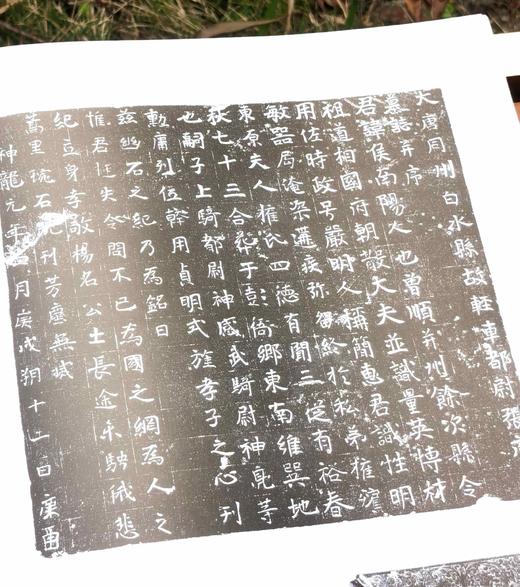 大唐同州白水縣故輕車都尉
墓誌并序
君諱侯南陽人也曾順并州餘次縣令
祖道相國府朝散大夫並識量英博材
用佐時政号嚴明人稱簡惠君識性明
敏器局淹深遘疾弥留終於私第權殯
東原夫人權氏四德有聞三從有裕春
秋七十三合葬于彭衙鄉東南維巽地
也嗣子上騎都尉神威武騎尉神龍等
勳庸列位幹用貞明式旌孝子之心刊
茲幽石之紀乃為銘曰
惟君往矣令問不已為國之網為人之
紀立身孝敬楊名公士長途未騁俄悲
蒿里琬石刊芳塵無斁
神龍元年 月庚戌朔十一日庚酉